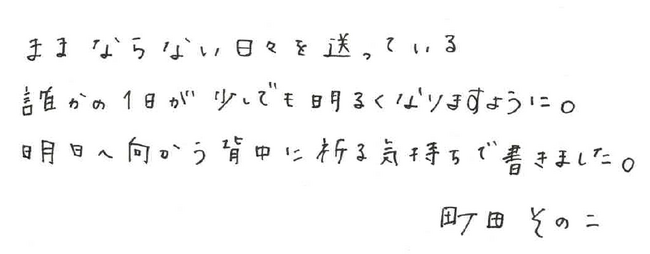 ままならない日々を送っている
誰かの1日が少しでも明るくなりますように。
明日へ向かう背中に祈る気持ちで書きました。
町田そのこ